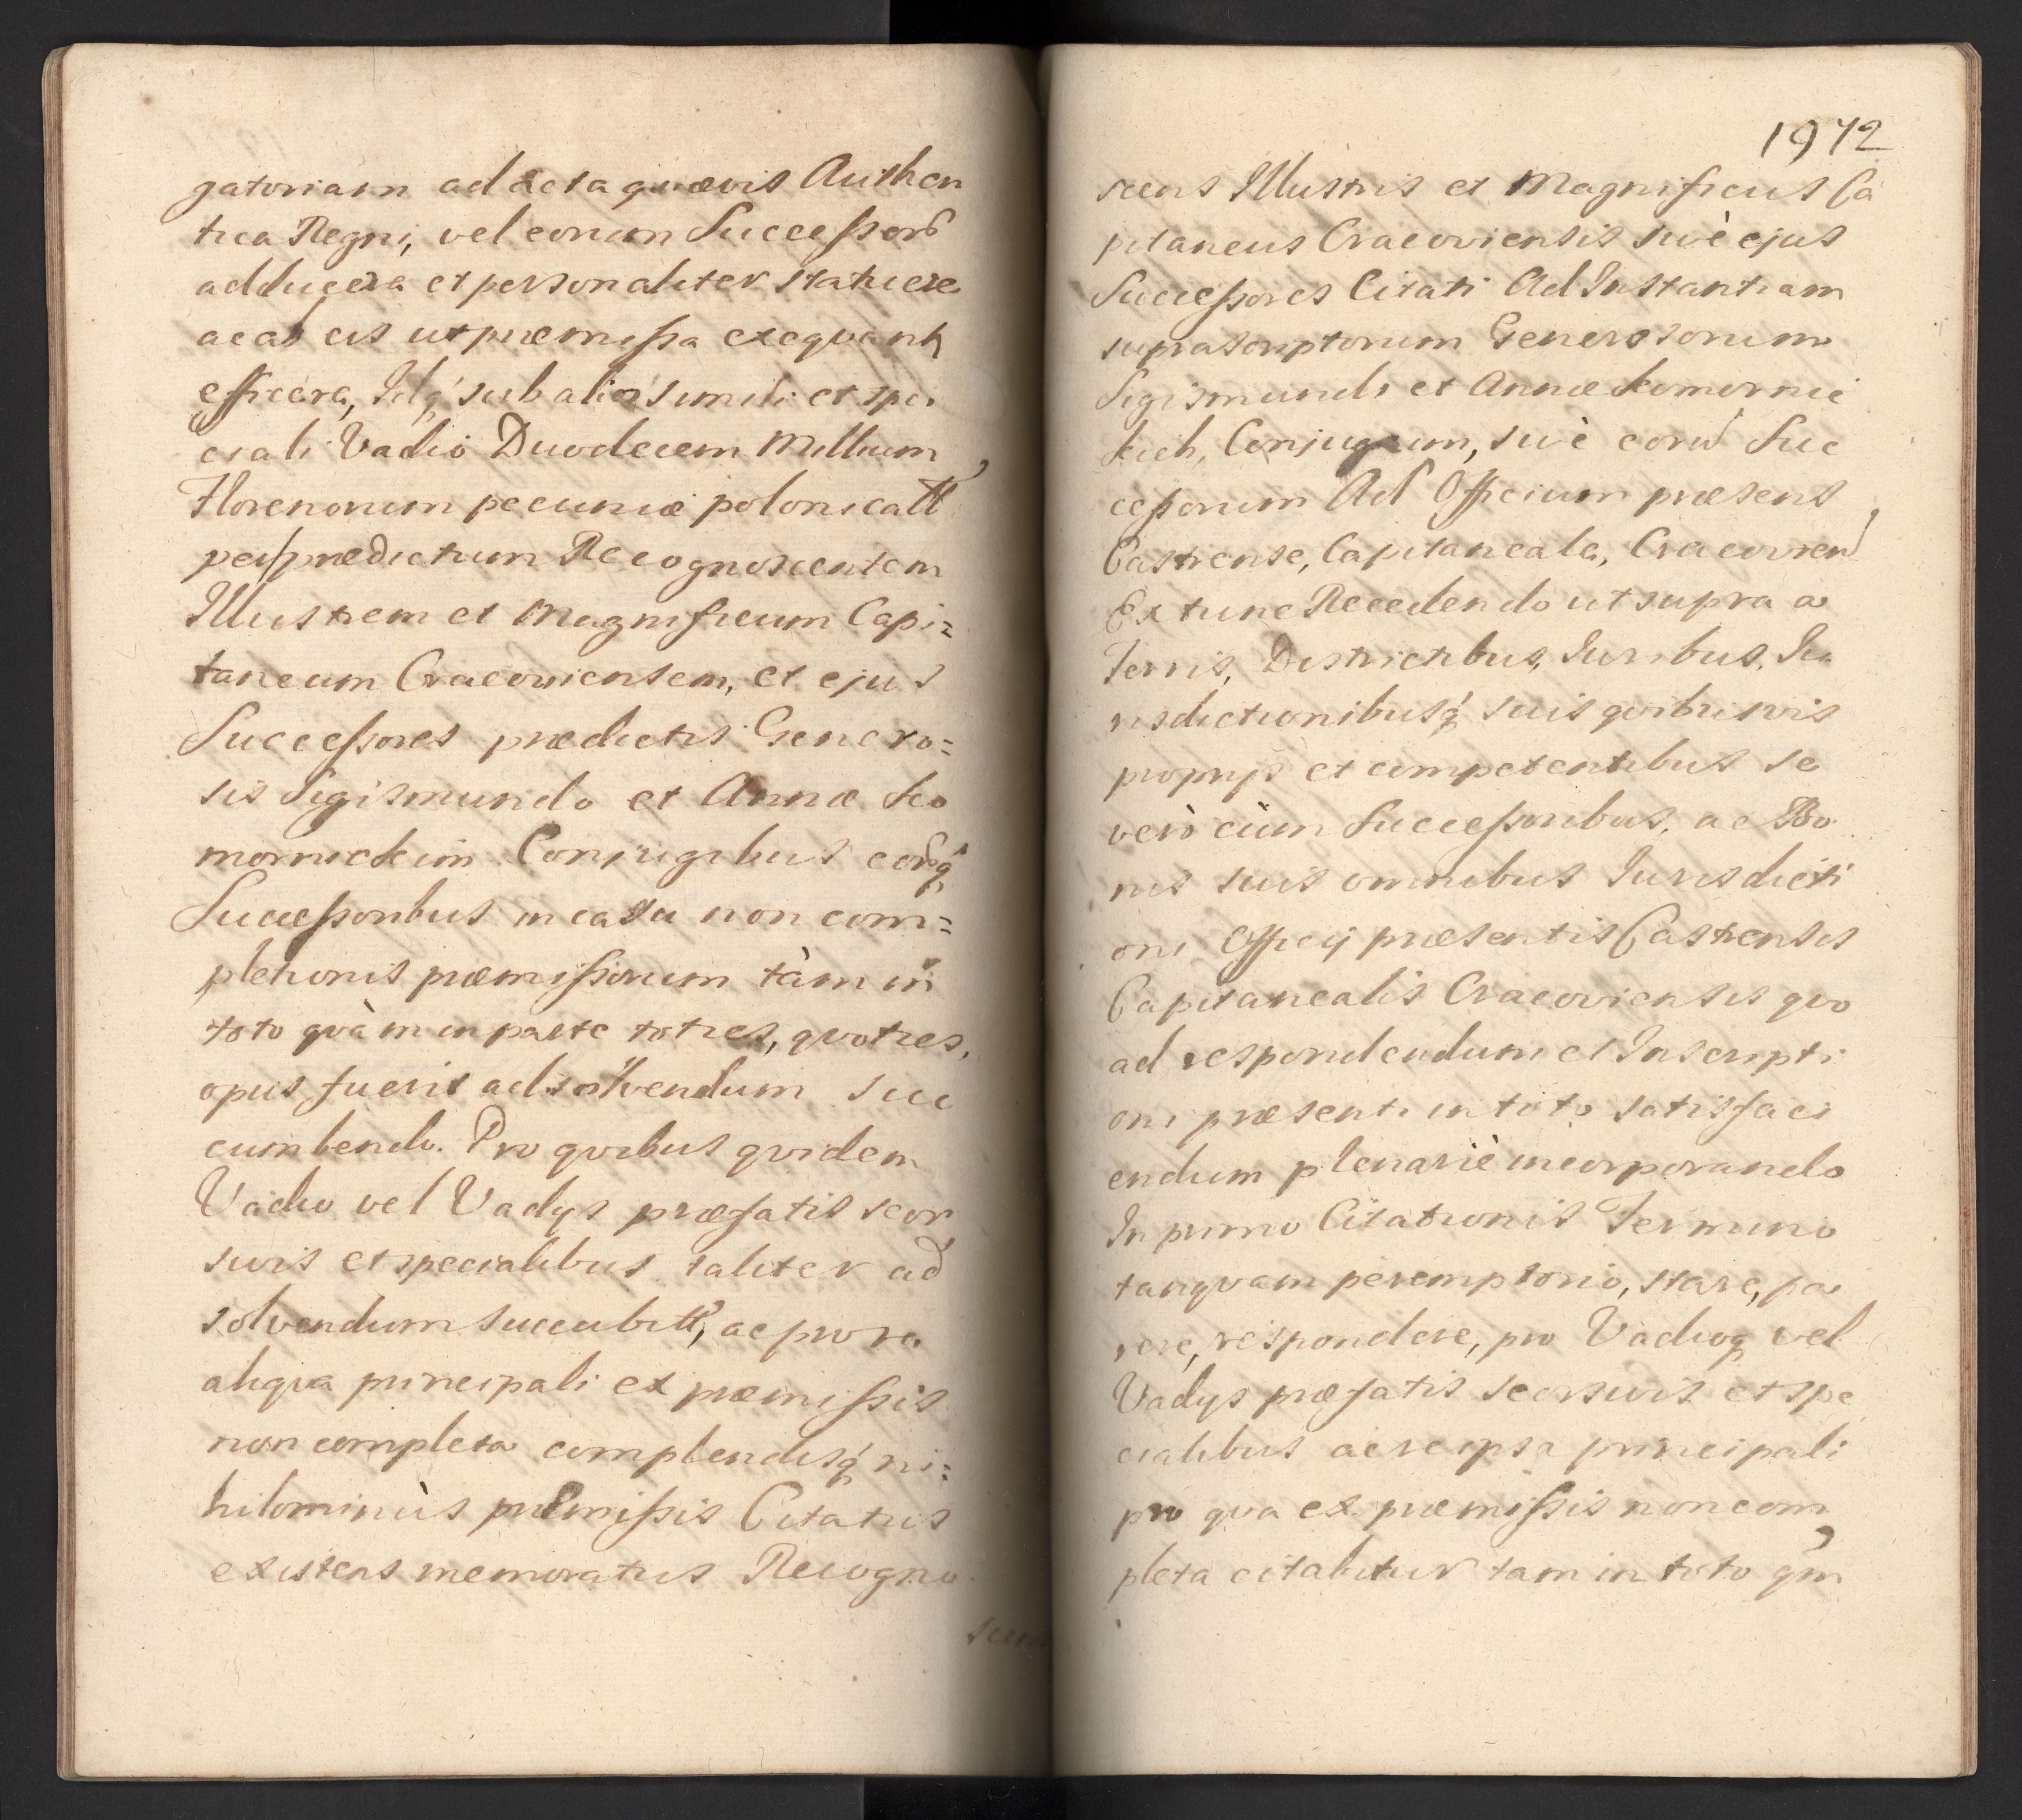 gatoriam ad acta quævis Authen
tica Regni, vel eorum Successorũ
adducere et personaliter statuere
ac ab eis ut præmissa exequantʳ
efficere, Idq́ sub alio simili et spe
ciali Vadio Duodecem Millium
Florenorum pecuniæ polonicaɫɫ
per prædictum Recognoscentem
Illustrem et Magnificum Capi=
taneum Cracoviensem, et ejus
Successores prædictis Genero=
sis Sigismundo et Annæ Ko
mornickim Conjugibus eorũq́
Successoribus in casu non com=
pletionis præmissorum tàm in
toto qvàm in parte toties, qvoties,
opus fuerit ad solvendum suc
cumbendo. Pro qvibus qvidem
Vadio vel Vadys præfatis seor
sivis et specialibus taliter ad
solvendum succubitɫ, ac pro re
aliqva principali ex præmissis
non completa complendisq́ ni=
hilominùs præmissis Citatus
existens memoratus Recogno
scens
1972
scens Illustris et Magnificus Ca
pitaneus Cracoviensis sivè ejus
Successores Citati Ad Instantiam
suprascriptorum Generosorum
Sigismundi et Annæ Komornic
kich, Conjugum, sivè eorũ Suc
cessorum Ad Officium præsens
Castrense, Capitaneale, Cracovien̄
Ex tunc Recedendo ut supra a
Terris, Districtibus, Iuribus, Iu
risdictionibusq́ suis qvibusvis
proprijs et competentibus se
verò cùm Successoribus, ac Bo
nis suis omnibus Iurisdicti
oni Officij præsentis Castrensis
Capitanealis Cracoviensis qvo
ad respondendum et Inscripti
oni præsenti in toto satisfaci
endum plenariè incorporando
In primo Citationis Termino
tanqvam peremptorio, stare, pa
rere, respondere, pro Vadioq́ vel
Vadys præfatis seorsivis et spe
cialibus ac re ipsa principali
pro qva ex præmissis non com
pleta citabitur tam in toto qm̃